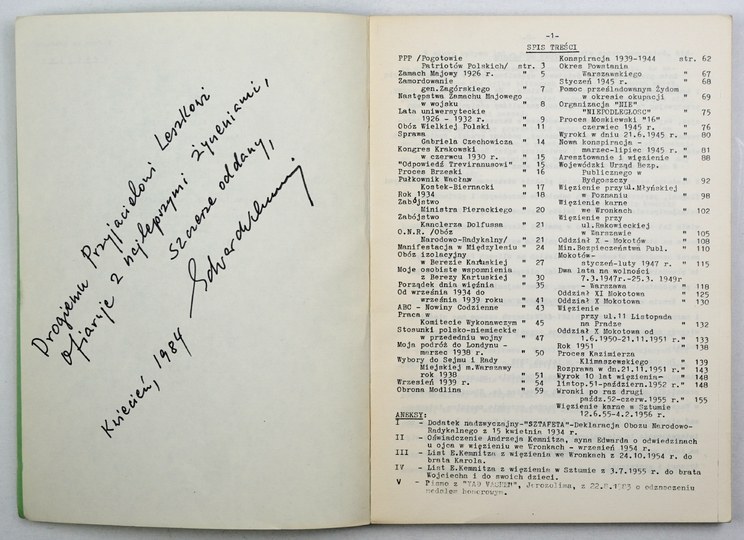 Drogiemu Przyjacielowi Leszkowi
ofiaruje z najlepszymi życzeniami,
szczerze oddany,
Kwiecień, 1984
-1-
SPIS TREŚCI
PPP /Pogotowie
Patriotów Polskich/ str. 3
Zamach Majowy 1926 r. " 5
Zamordowanie
gen.Zagórskiego " 7
Następstwa Zamachu Majowego
w wojsku " 8
Lata uniwersyteckie
1926 - 1932 r. " 9
Obóz Wielkiej Polski " 11
Sprawa
Gabriela Czechowicza " 14
Kongres Krakowski
w czerwcu 1930 r. " 15
"Odpowiedź Treviranusowi" " 15
Proces Brzeski " 16
Pułkownik Wacław
Kostek-Biernacki " 17
Rok 1934 " 18
Zabójstwo
Ministra Pierackiego " 20
Zabójstwo
Kanclerza Dolfussa " 21
O.N.R. /Obóz
Narodowo-Radykalny/ " 21
Manifestacja w Międzylesiu " 24
Obóz izolacyjny
w Berezie Kartuskiej " 27
Moje osobiste wspomnienia
z Berezy Kartuskiej " 30
Porządek dnia więźnia " 35
Od września 1934 do
września 1939 roku " 41
ABC - Nowiny Codzienne " 43
Praca w
Komitecie Wykonawczym " 45
Stosunki polsko-niemieckie
w przededniu wojny " 47
Moja podróż do Londynu -
marzec 1938 r. " 50
Wybory do Sejmu i Rady
Miejskiej m.Warszawy
rok 1938 " 51
Wrzesień 1939 r. " 54
Obrona Modlina " 59
Konspiracja 1939-1944 str. 62
Okres Powstania
Warszawskiego " 67
Styczeń 1945 r. " 68
Pomoc prześladowanym Żydom
w okresie okupacji " 69
Organizacja "NIE"
"NIEPODLEGŁOŚĆ" " 75
Proces Moskiewski "16"
czerwiec 1945 r. " 76
Wyroki w dniu 21.6.1945 r. " 80
Nowa konspiracja -
marzec-lipiec 1945 r. " 81
Aresztowanie i więzienie " 88
Wojewódzki Urząd Bezp.
Publicznego w
Bydgoszczy " 92
Więzienie przy ul.Młyńskiej
w Poznaniu " 98
Więzienie karne
we Wronkach " 102
Więzienie przy
ul.Rakowieckiej
w Warszawie " 105
Oddział X - Mokotów " 108
Min.Bezpieczeństwa Publ. " 110
Mokotów-
styczeń-luty 1947 r. " 115
Dwa lata na wolności
7.3.1947r.-25.3. 1949r
- Warszawa " 118
Oddział XI Mokotowa " 125
Oddział X Mokotowa " 130
Więzienie
przy ul.11 Listopada
na Pradze " 132
Oddział X Mokotowa od
1.6.1950-21.11.1951 r. " 133
Rok 1951 " 138
Proces Kazimierza
Klimaszewskiego " 139
Rozprawa w dn.21.11.1951 r." 143
Wyrok 10 lat więzienia- " 148
listop.51-paździ ern.1952 r." 148
Wronki po raz drugi
paźdz.52-czerw.1955 r." 155
Więzienie karne w Sztumie
12.6.55-4.2.1956 r.
ANEKSY:
I - Dodatek nadzwyczajny-"SZTAFETA"-Deklaracja Obozu Narodowo-
Radykalnego z 15 kwietnia 1934 r.
II - Oświadczenie Andrzeja Kemnitza, syna Edwarda o odwiedzinach
u ojca w więzieniu we Wronkach - wrzesień 1954 r.
III - List E.Kemnitza z więzienia we Wronkach z 24.10.1954 r. do
brata Karola.
IV - List E.Kemnitza z więzienia w Sztumie z 3.7.1955 r. do brata
Wojciecha i do swoich dzieci.
V - Pismo z "YAD VASHEM", Jerozolima, z 1983 o odznaczeniu
medalem honorowym.